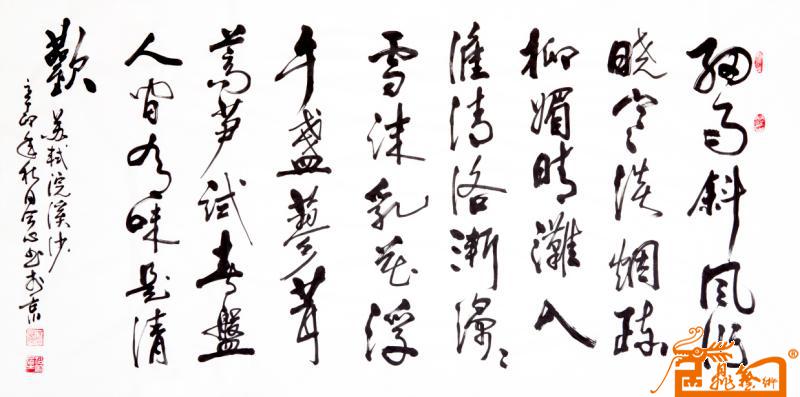 細雨斜風作
晓寒淡烟疏
柳媚晴灘入
淮清洛漸漫漫
雪沫乳花浮
午盞蓼茸
蒿笋試春盤
人間有味是清
歡
苏轼浣溪沙
辛卯年秋月會心書於京